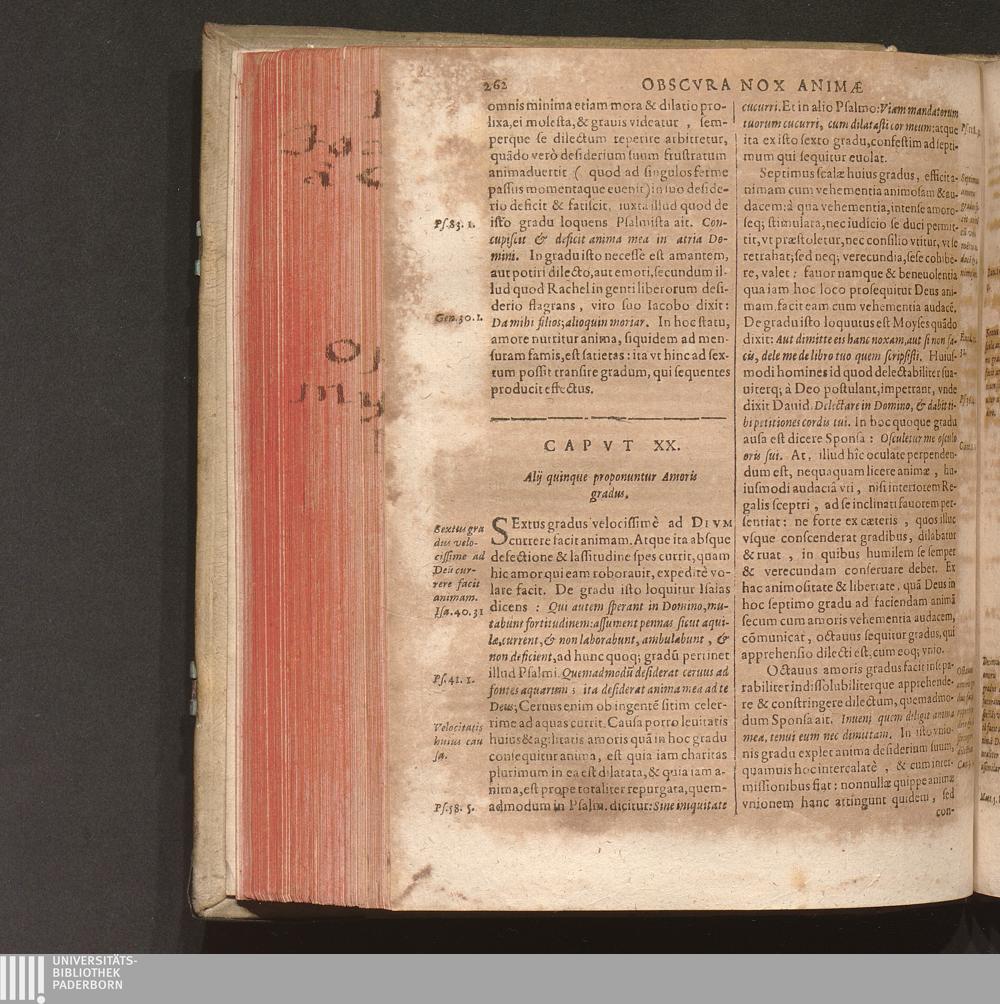 262
OBSCVRA NOX ANIMÆ
omnis minima etiam mora & dilatio pro-
lixa, ei molesta, & grauis videatur , sem-
perque se dilectum reperire arbitretur,
quãdo verò desiderium suum frustratum
animaduertit ( quod ad singulos ferme
passus momentaque euenit) in suo deside-
rio deficit & fatiscit, iuxta illud quod de
Ps. 83. 1.
isto gradu loquens Psalmista ait. Con-
cupiscit & deficit anima mea in atria Do-
mini. In gradu isto necesse est amantem,
aut potiri dilecto, aut emori, secundum il-
lud quod Rachel in genti liberorum desi-
derio flagrans , viro suo Iacobo dixit:
Gen. 30. 1.
Da mihi filios; alioquin moriar. In hoc statu,
amore nutritur anima, siquidem ad men-
suram famis, est satietas : ita vt hinc ad sex-
tum possit transire gradum, qui sequentes
producit effectus.
CAPVT XX.
Alij quinque proponuntur Amoris
gradus.
Sextus gra
dus velo-
cissime ad
Deũ cur-
rere facit
animam.
Isa. 40. 31
SExtus gradus velocissimè ad DIVM
currere facit animam. Atque ita absque
defectione & lassitudine spes currit, quam
hic amor qui eam roborauit, expeditè vo-
lare facit. De gradu isto loquitur Isaias
dicens : Qui autem sperant in Domino, mu-
tabunt fortitudinem: assument pennas sicut aqui-
læ, current, & non laborabunt, ambulabunt , &
non deficient, ad hunc quoq; gradũ pertinet
Ps. 41. 1.
illud Psalmi. Quemadmodũ desiderat ceruus ad
fontes aquarum ; ita desiderat anima mea ad te
Deus; Ceruus enim ob ingentẽ sitim celer-
Velocitatis
huius cau
sa.
rime ad aquas currit. Causa porro leuitatis
huius & agilitatis amoris quã in hoc gradu
consequitur anima, est quia iam charitas
plurimum in ea est dilatata, & quia iam a-
nima, est prope totaliter repurgata, quem-
Ps. 58. 5.
admodum in Psalm. dicitur: Sine iniquitate
cucurri. Et in alio Psalmo: Viam mandatorum
tuorum cucurri, cum dilatasti cor meum: atque
ita ex isto sexto gradu, confestim ad septi-
mum qui sequitur euolat.
Septimus scalæ huius gradus, efficit a-
nimam cum vehementia animosam & au-
dacem: à qua vehementia, intense amoro-
seq; stimulata, nec iudicio se duci permit-
tit, vt præstoletur, nec consilio vtitur, vt se
retrahat; sed neq; verecundia, sese cohibe-
re, valet : fauor namque & beneuolentia
qua iam hoc loco prosequitur Deus ani-
mam. facit eam cum vehementia audacẽ.
De gradu isto loquutus est Moyses quãdo
dixit: Aut dimitte eis hanc noxam, aut si non fa-
cis, dele me de libro tuo quem scripsisti. Huius-
modi homines id quod delectabiliter sua-
uiterq; à Deo postulant, impetrant, vnde
dixit Dauid. Delectare in Domino, & dabit ti-
bi petitiones cordis tui. In hoc quoque gradu
ausa est dicere Sponsa : Osculetur me osculo
oris sui. At, illud hîc oculate perpenden-
dum est, nequaquam licere animæ , hu-
iusmodi audaciã vti , nisi interiorem Re-
galis sceptri , ad se inclinati fauorem per-
sentiat : ne forte ex cæteris , quos illuc
vsque conscenderat gradibus, dilabatur
& ruat , in quibus humilem se semper
& verecundam conseruare debet. Ex
hac animositate & libertate, quã Deus in
hoc septimo gradu ad faciendam animã
secum cum amoris vehementia audacem,
cõmunicat, octauus sequitur gradus, qui
apprehensio dilecti est, cum eoq; vnio.
Octauus amoris gradus facit insepa-
rabiliter indissolubiliterque apprehende-
re & constringere dilectum, quemadmo-
dum Sponsa ait. Inueni quem diligit anima
mea, tenui eum nec dimittam. In isto vnio-
nis gradu explet anima desiderium suum,
quamuis hoc intercalatè , & cum inter-
missionibus fiat : nonnullæ quippe animæ
vnionem hanc attingunt quidem , sed
con-
UNIVERSITÄTS-
BIBLIOTHEK
PADERBORN